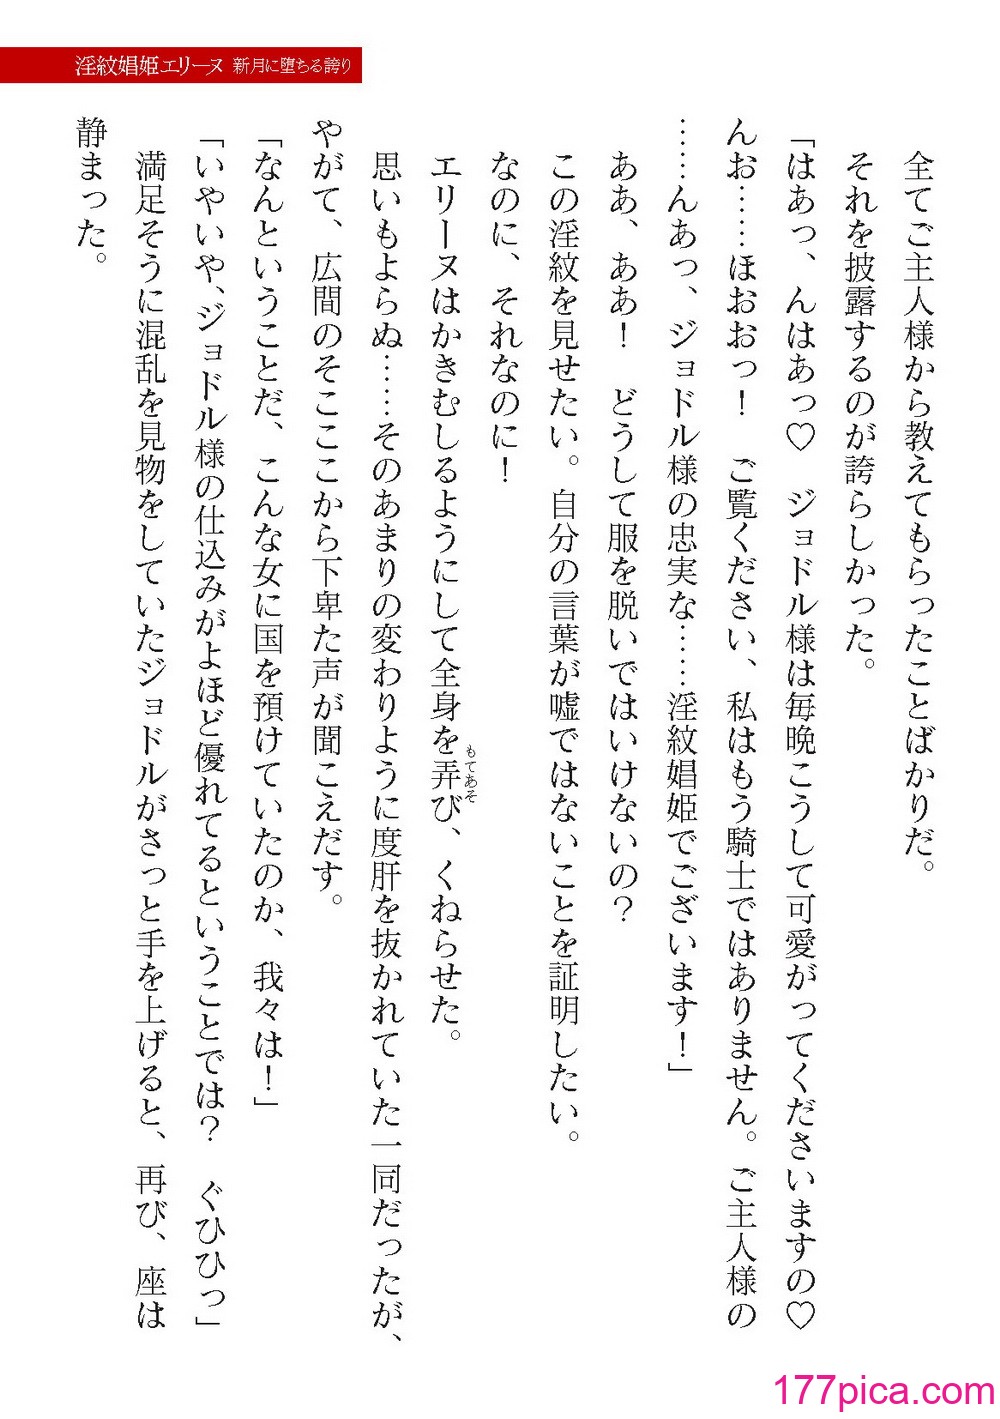 淫紋娼姫エリーヌ 新月に堕ちる誇り
全てご主人様から教えてもらったことばかりだ。
それを披露するのが誇らしかった。
「はあっ、んはあっ♡　ジョドル様は毎晩こうして可愛がってくださいますの♡
んお……ほおおっ！　ご覧ください、私はもう騎士ではありません。ご主人様の
……んあっ、ジョドル様の忠実な……淫紋娼姫でございます！」
ああ、ああ！　どうして服を脱いではいけないの？
この淫紋を見せたい。自分の言葉が嘘ではないことを証明したい。
なのに、それなのに！
エリーヌはかきむしるようにして全身を弄び、くねらせた。
もてあそ
思いもよらぬ……そのあまりの変わりように度肝を抜かれていた一同だったが、
やがて、広間のそこここから下卑た声が聞こえだす。
「なんということだ、こんな女に国を預けていたのか、我々は！」
「いやいや、ジョドル様の仕込みがよほど優れてるということでは？　ぐひひっ」
満足そうに混乱を見物をしていたジョドルがさっと手を上げると、再び、座は
静まった。
177pica.com